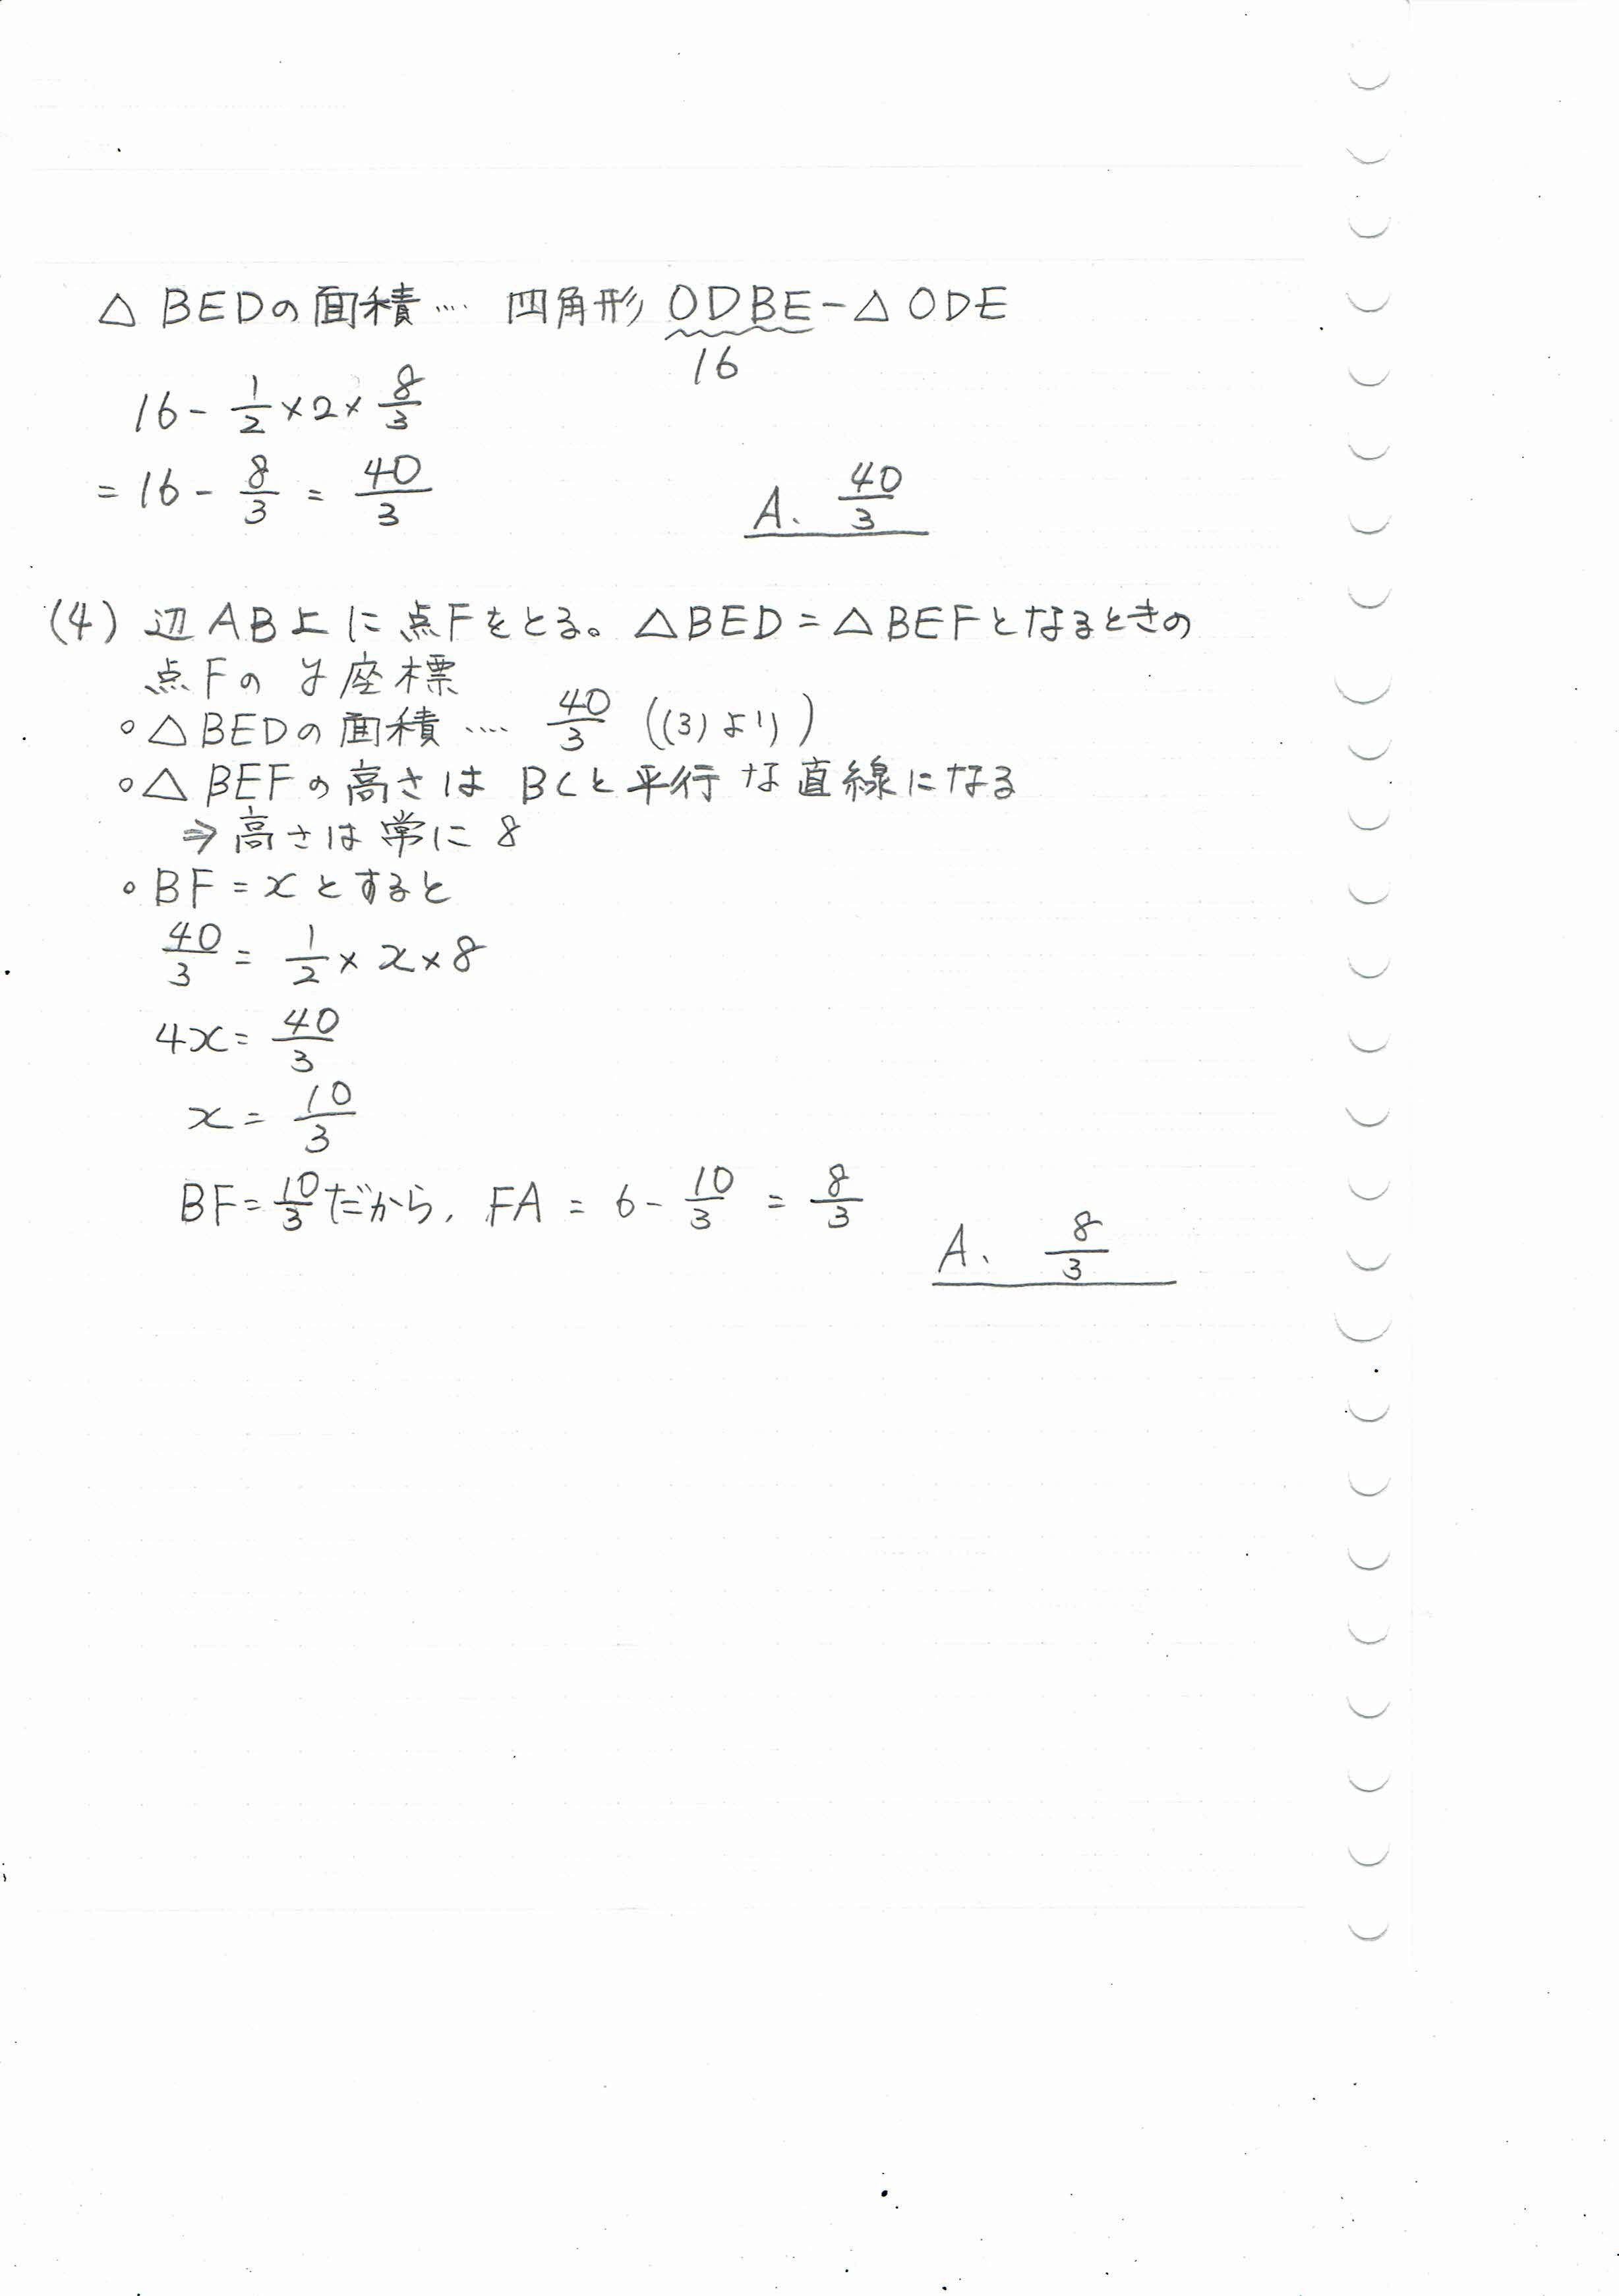 △BEDの面積…. 四角形ODBE-△ODE
16
16-1/2×2×8/3
=16-8/3=40/3
A. 40/3
(4) 辺AB上に点Fをとる。△BED=△BEFとなるときの
点Fのy座標
○△BEDの面積…. 40/3 ((3)より)
○△BEFの高さはBCと平行な直線になる
⇒高さは常に8
○BF=xとすると
40/3=1/2×x×8
4x=40/3
x=10/3
BF=10/3だから, FA=6-10/3=8/3
A. 8/3